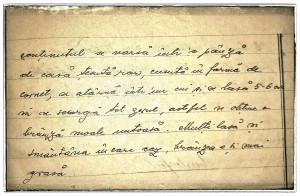 conținutul se varsă într-o pânză
de casă țesută rar, cusută în formă de
cornet, se atârnă într-un cui și se lasă 5-6 ore
să se scurgă tot zerul, astfel se obține o
brânză moale untoasă. Mulți lasă și
smântâna în care caz brânza e și mai
grasă.